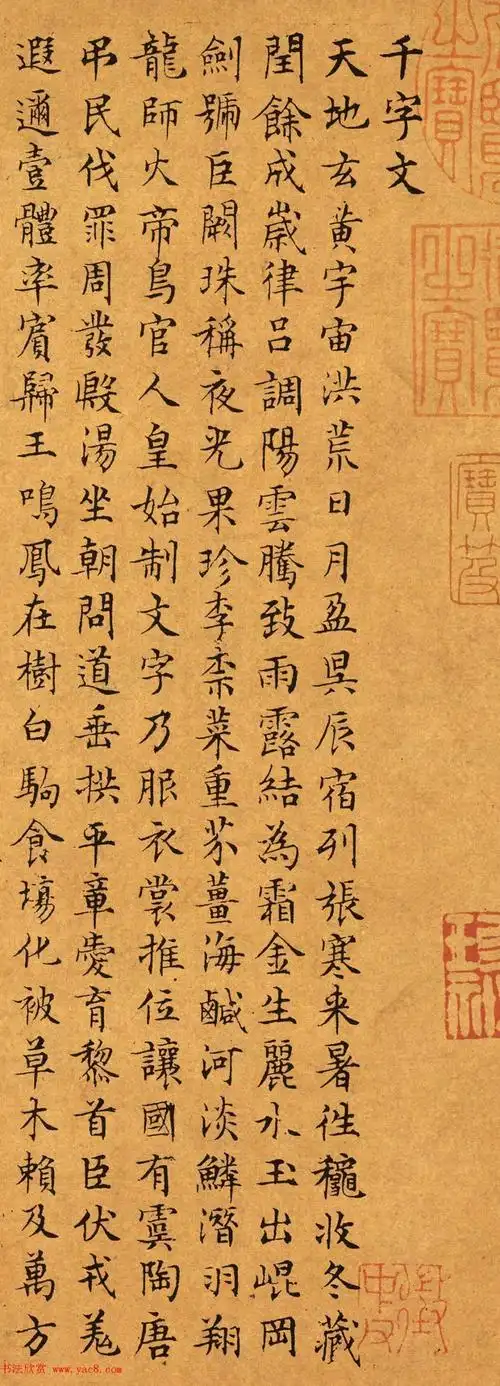 千字文
天地玄黃宇宙洪荒日月盈昃辰宿列張寒来暑徃穐收冬藏
閏餘成歲律吕調陽雲騰致雨露結為霜金生麗水玉出崐岡
劍號巨闕珠稱夜光果珍李柰菜重芥薑海鹹河淡鱗潛羽翔
龍師火帝鳥官人皇始制文字乃服衣裳推位讓國有虞陶唐
弔民伐罪周發殷湯坐朝問道垂拱平章愛育黎首臣伏戎羌
遐邇壹體率賓歸王鳴鳳在樹白駒食場化被草木賴及萬方
书法欣赏 www.yac8.com